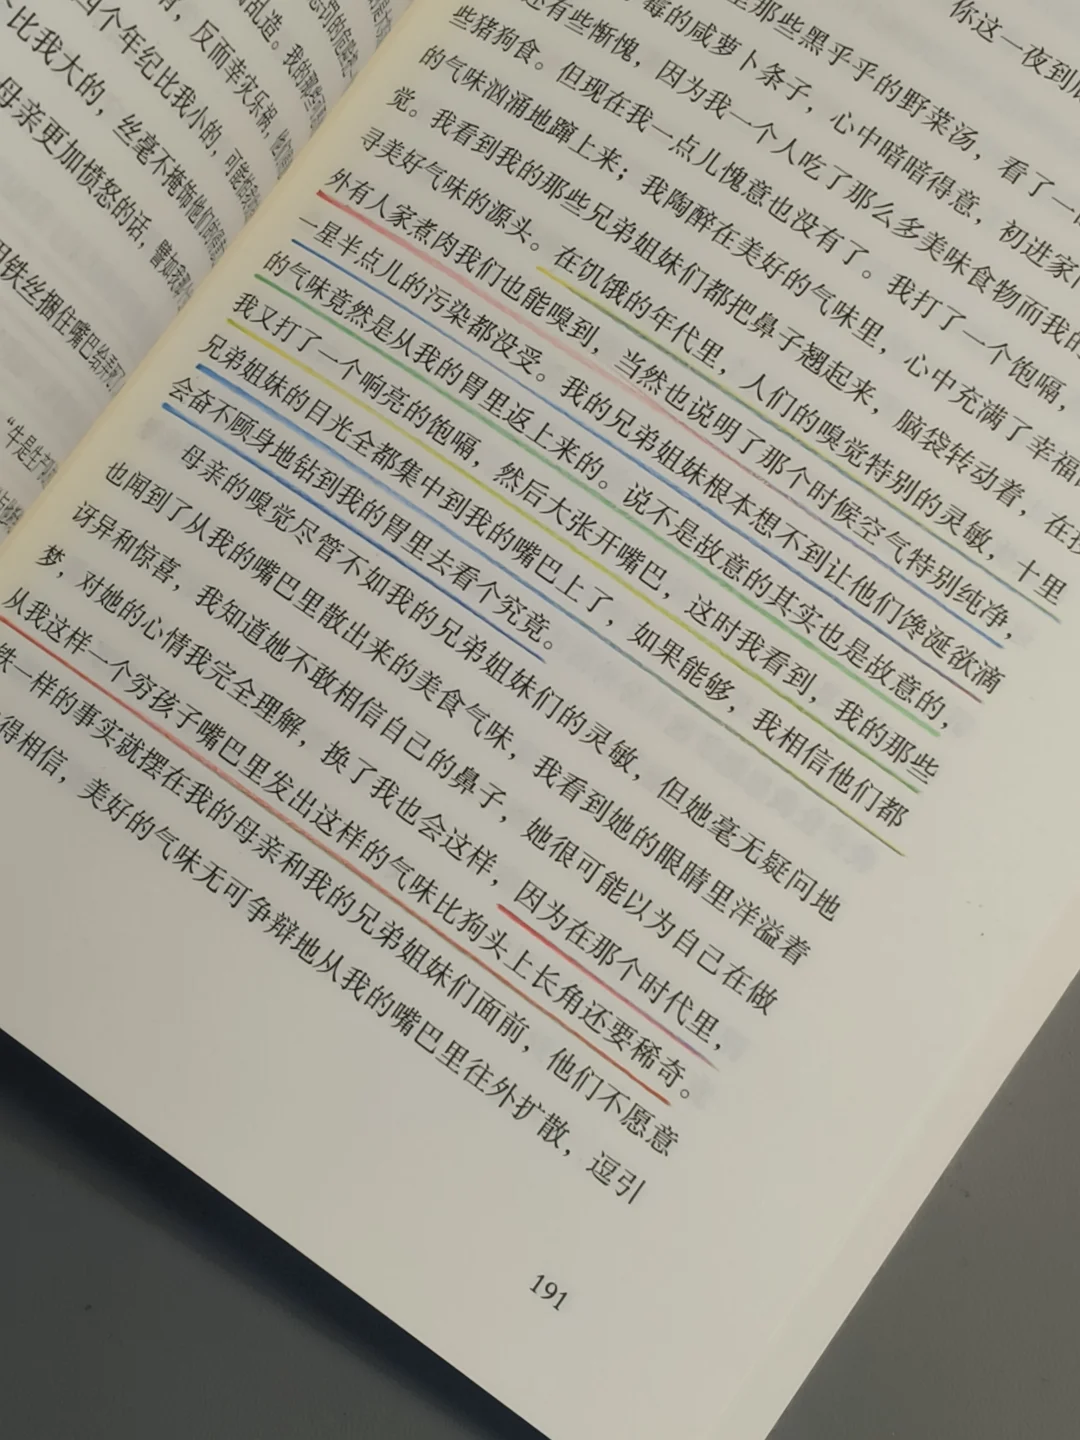 乱造。我的那些
，反而幸灾乐祸，他们
四个年纪比我小的，可能
比我大的，丝毫不掩饰他们的
母亲更加愤怒的话，譬如
用铁丝捆住嘴巴给弄死了
“牛是生产
你这一夜到底
那些黑乎乎的野菜汤，看了一
霉的咸萝卜条子，心中暗暗得意，初进家门
还有些惭愧，因为我一个人吃了那么多美味食物而我的
些猪狗食。但现在我一点儿愧意也没有了。我打了一个饱嗝，
的气味汹涌地蹿上来；我陶醉在美好的气味里，心中充满了幸福
觉。我看到我的那些兄弟姐妹们都把鼻子翘起来，脑袋转动着，在找
寻美好气味的源头。在饥饿的年代里，人们的嗅觉特别的灵敏，十里
外有人家煮肉我们也能嗅到，当然也说明了那个时候空气特别纯净，
一星半点儿的污染都没受。我的兄弟姐妹根本想不到让他们馋涎欲滴
的气味竟然是从我的胃里返上来的。说不是故意的其实也是故意的，
我又打了一个响亮的饱嗝，然后大张开嘴巴，这时我看到，我的那些
兄弟姐妹的目光全都集中到我的嘴巴上了，如果能够，我相信他们都
会奋不顾身地钻到我的胃里去看个究竟。
母亲的嗅觉尽管不如我的兄弟姐妹们的灵敏，但她毫无疑问地
也闻到了从我的嘴巴里散出来的美食气味，我看到她的眼睛里洋溢着
讶异和惊喜，我知道她不敢相信自己的鼻子，她很可能以为自己在做
梦，对她的心情我完全理解，换了我也会这样，因为在那个时代里，
从我这样一个穷孩子嘴巴里发出这样的气味比狗头上长角还要稀奇。
铁一样的事实就摆在我的母亲和我的兄弟姐妹们面前，他们不愿意
得相信，美好的气味无可争辩地从我的嘴巴里往外扩散，逗引
191